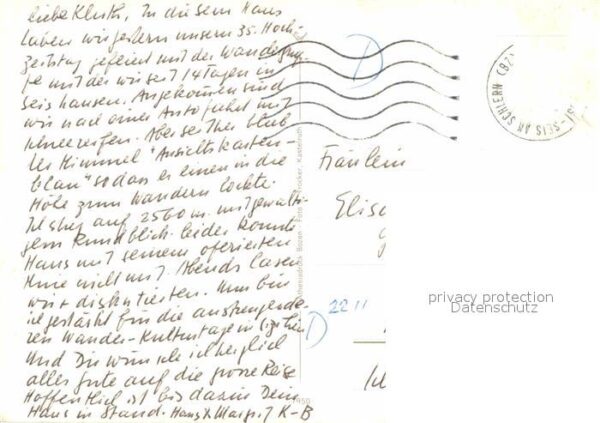 liebe Kluth, In diesem Haus
haben wir gestern unsern 35. Hoch-
zeitstag gefeiert mit der Wandergrup-
pe mit der wir seit 14 Tagen in
Seis hausen. Angekommen sind
wir nach einer Autofahrt mit
Schneereifen. Aber seither blieb
der Himmel "Ansichtskarten-
blau" sodass er einen in die
Höhe zum Wandern lockte.
Ich stieg auf 2560 m. mit gewalti-
gem Rundblick. leider konnte
Hans mit seinem operierten
Knie nicht mit. Abends lasen
wir + diskutierten. Nun bin
ich gestärkt für die anstrengende-
ren Wander-Kulturtage in
Und Dir wünsche ich herzlich
alles gute auf die grosse Reise
Hoffentlich ist bis dahin Dein
Haus in Stand. Hans + Margr. K-B
Bozen - Foto Kastelruth
SEIS AM SCHLERN (BZ)
D
Fräulein
Elis
22 11
D
privacy protection
Datenschutz